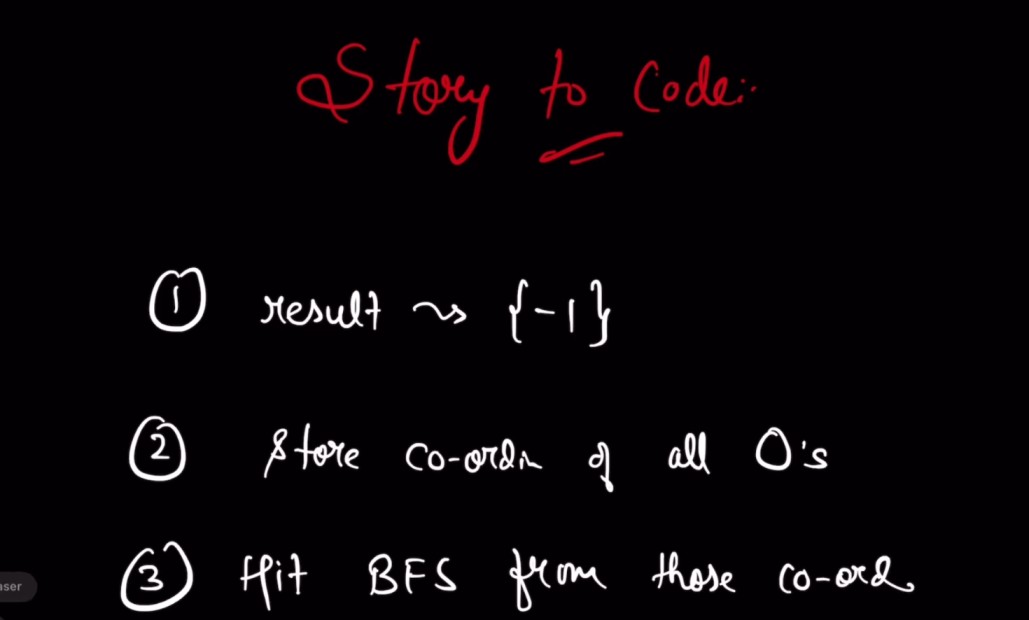 Story to Code:
① result ~> {-1}
② Store co-ordin of all 0's
③ Hit BFS from those co-ord
aser